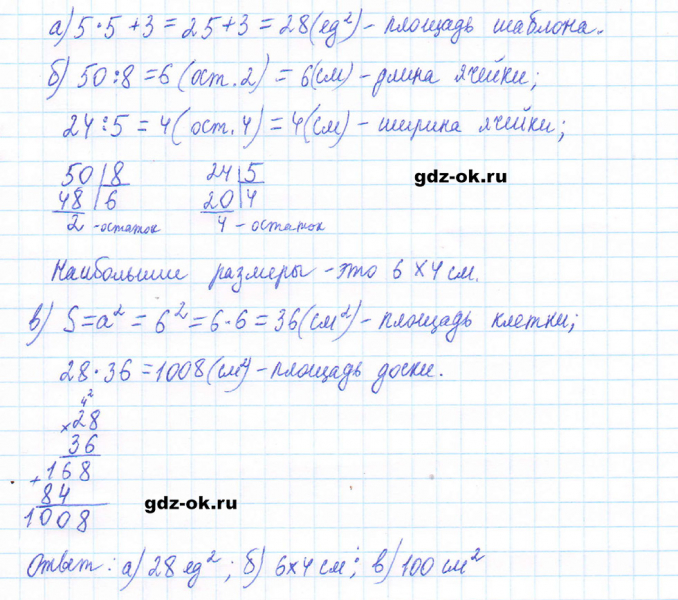 а) 5·5+3=25+3=28(ед²) – площадь шаблона.
б) 50:8=6(ост.2)=6(см) – длина ячейки;
24:5=4(ост.4)=4(см) – ширина ячейки;
50|8 24|5
48|6 20|4
2 – остаток 4 – остаток
gdz-ok.ru
Наибольшие размеры – это 6×4 см.
в) S=a²=6²=6·6=36(см²) – площадь клетки;
28·36=1008(см²) – площадь доски.
4 2
×28
36
+168
84
1008
gdz-ok.ru
Ответ: а) 28 ед²; б) 6×4 см; в) 100 см²